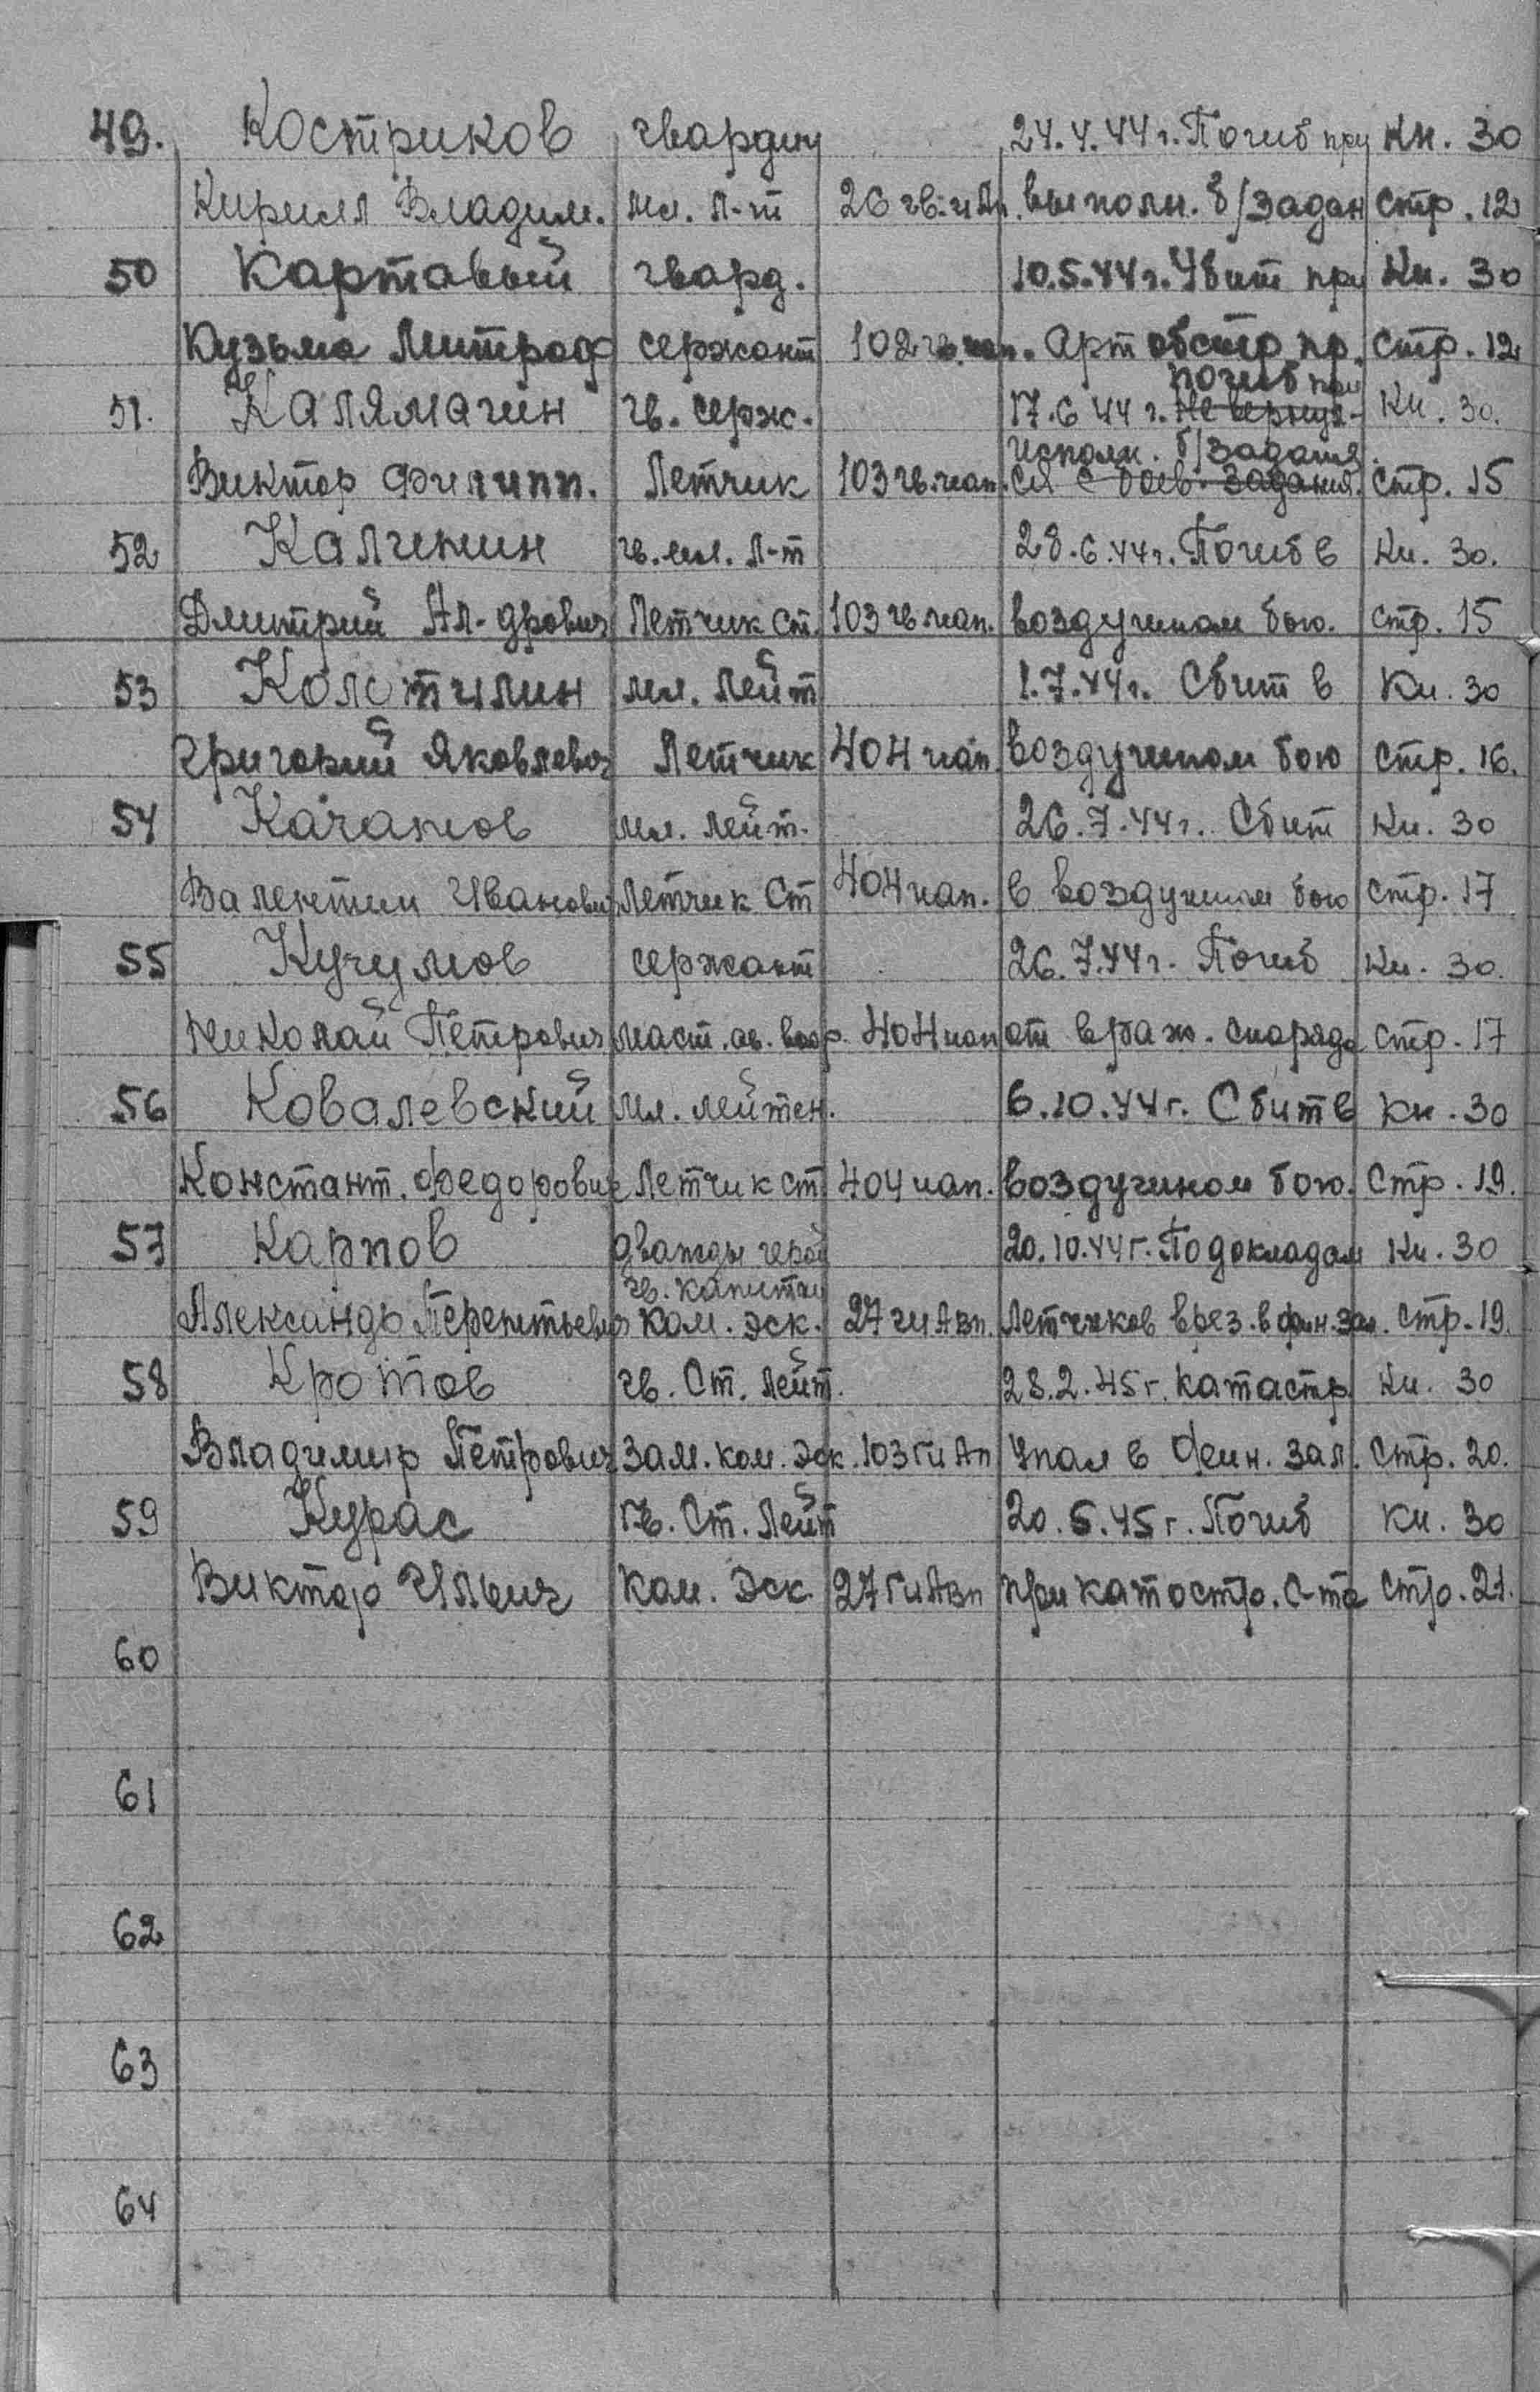 49. Костриков гвардии 24.4.44 г. Погиб при Кн. 30
Кирилл Владим. мл. л-т 26 гв. иАп. выполн. б/задан Стр. 12
50 Картавый гвард. 10.5.44 г. Убит при Кн. 30
Кузьма Митроф сержант 102 гв. иап. Арт обстр пр. Стр. 12
погиб при
51. Калямагин гв. серж. 17.6 44 г. Не вернул- Кн. 30.
исполн. б/задания.
Виктор Филипп. Летчик 103 гв. иап. ся с боев. задания. Стр. 15
52 Калинин гв. мл. л-т 28.6.44 г. Погиб в Кн. 30.
Дмитрий Ал-дрович Летчик Ст. 103 гв иап. воздушном бою. Стр. 15
53 мл. лейт 1.7.44 г. Сбит в Кн. 30
Григорий Яковлевич Летчик 404 иап. воздушном бою Стр. 16.
54 Качанов мл. лейт. 26.7.44 г. Сбит Кн. 30
Валентин Иванович Летчик Ст 404 иап. в воздушном бою Стр. 17
55 Кучумов сержант 26.7.44 г. Погиб Кн. 30.
Николай Петрович маст. ав. воор. 404 иап от враж. снаряда Стр. 17
56 Ковалевский мл. лейтен. 6.10.44 г. Сбит в Кн. 30
Констант. Федорович Летчик ст 404 иап. воздушном бою. Стр. 19.
57 Карпов дважды герой 20.10.44 г. По докладам Кн. 30
гв. капитан
Александр Терентьевич ком. эск. 27 гиАвп. летчиков врез. в фин. зал. стр. 19.
58 Кротов гв. Ст. лейт. 28.2.45 г. катастр. Кн. 30
Владимир Петрович зам. ком. эск. 103 ГиАп Упал в Фин. зал. Стр. 20.
59 Курас гв. Ст. Лейт 20.5.45 г. Погиб Кн. 30
Виктор Ильич ком. эск. 27 ГиАвп при катостр. с-та стр. 21.
60
61
62
63
64